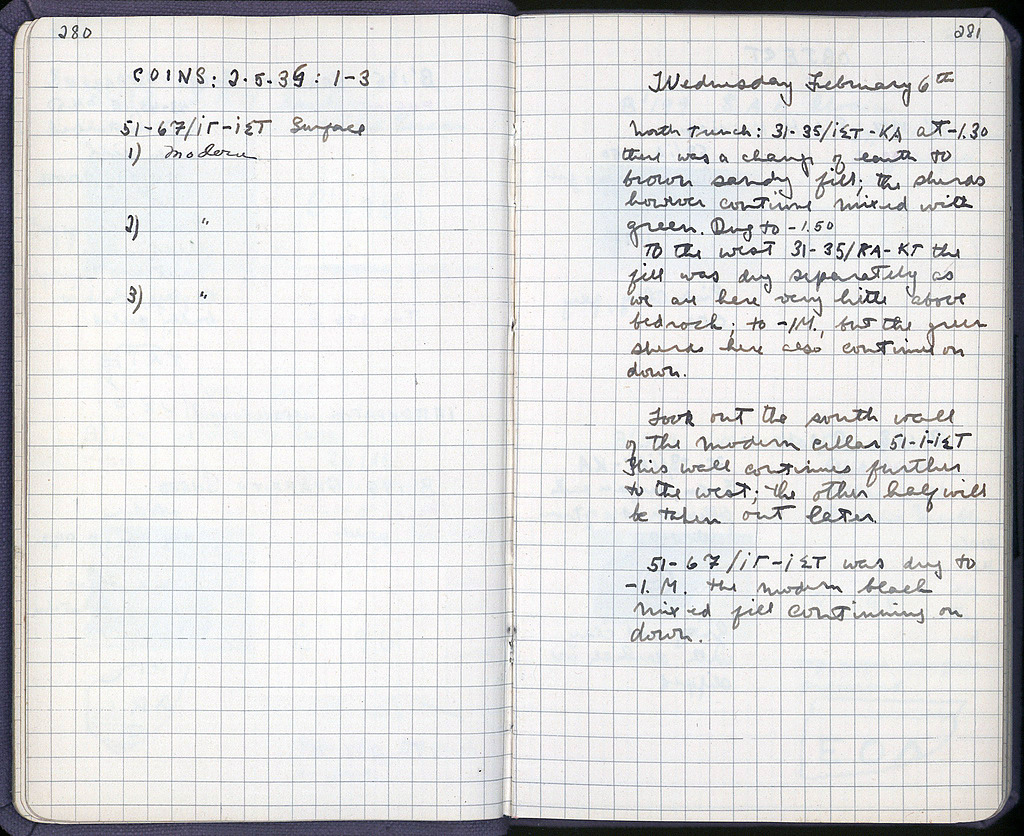 280
COINS: 2.5.35: 1-3
51-67/ΙΓ-ΙΣΤ Surface
1) Modern
2) "
3) "
281
Wednesday February 6th
North Trench: 31-35/ΙΣΤ-ΚΑ at -1.30
there was a change of earth to
brown sandy fill; the sherds
however continue mixed with
green. Dug to -1.50
To the west 31-35/ΚΑ-ΚΓ the
fill was dug separately as
we are here very little above
bedrock; to -1M., but the green
sherds here also continue on
down.
Took out the south wall
of the modern cellar 51-Ι-ΙΣΤ
This wall continues further
to the west; the other half will
be taken out later.
51-67/ΙΓ-ΙΣΤ was dug to
-1.M. the modern black
mixed fill continuing on
down.